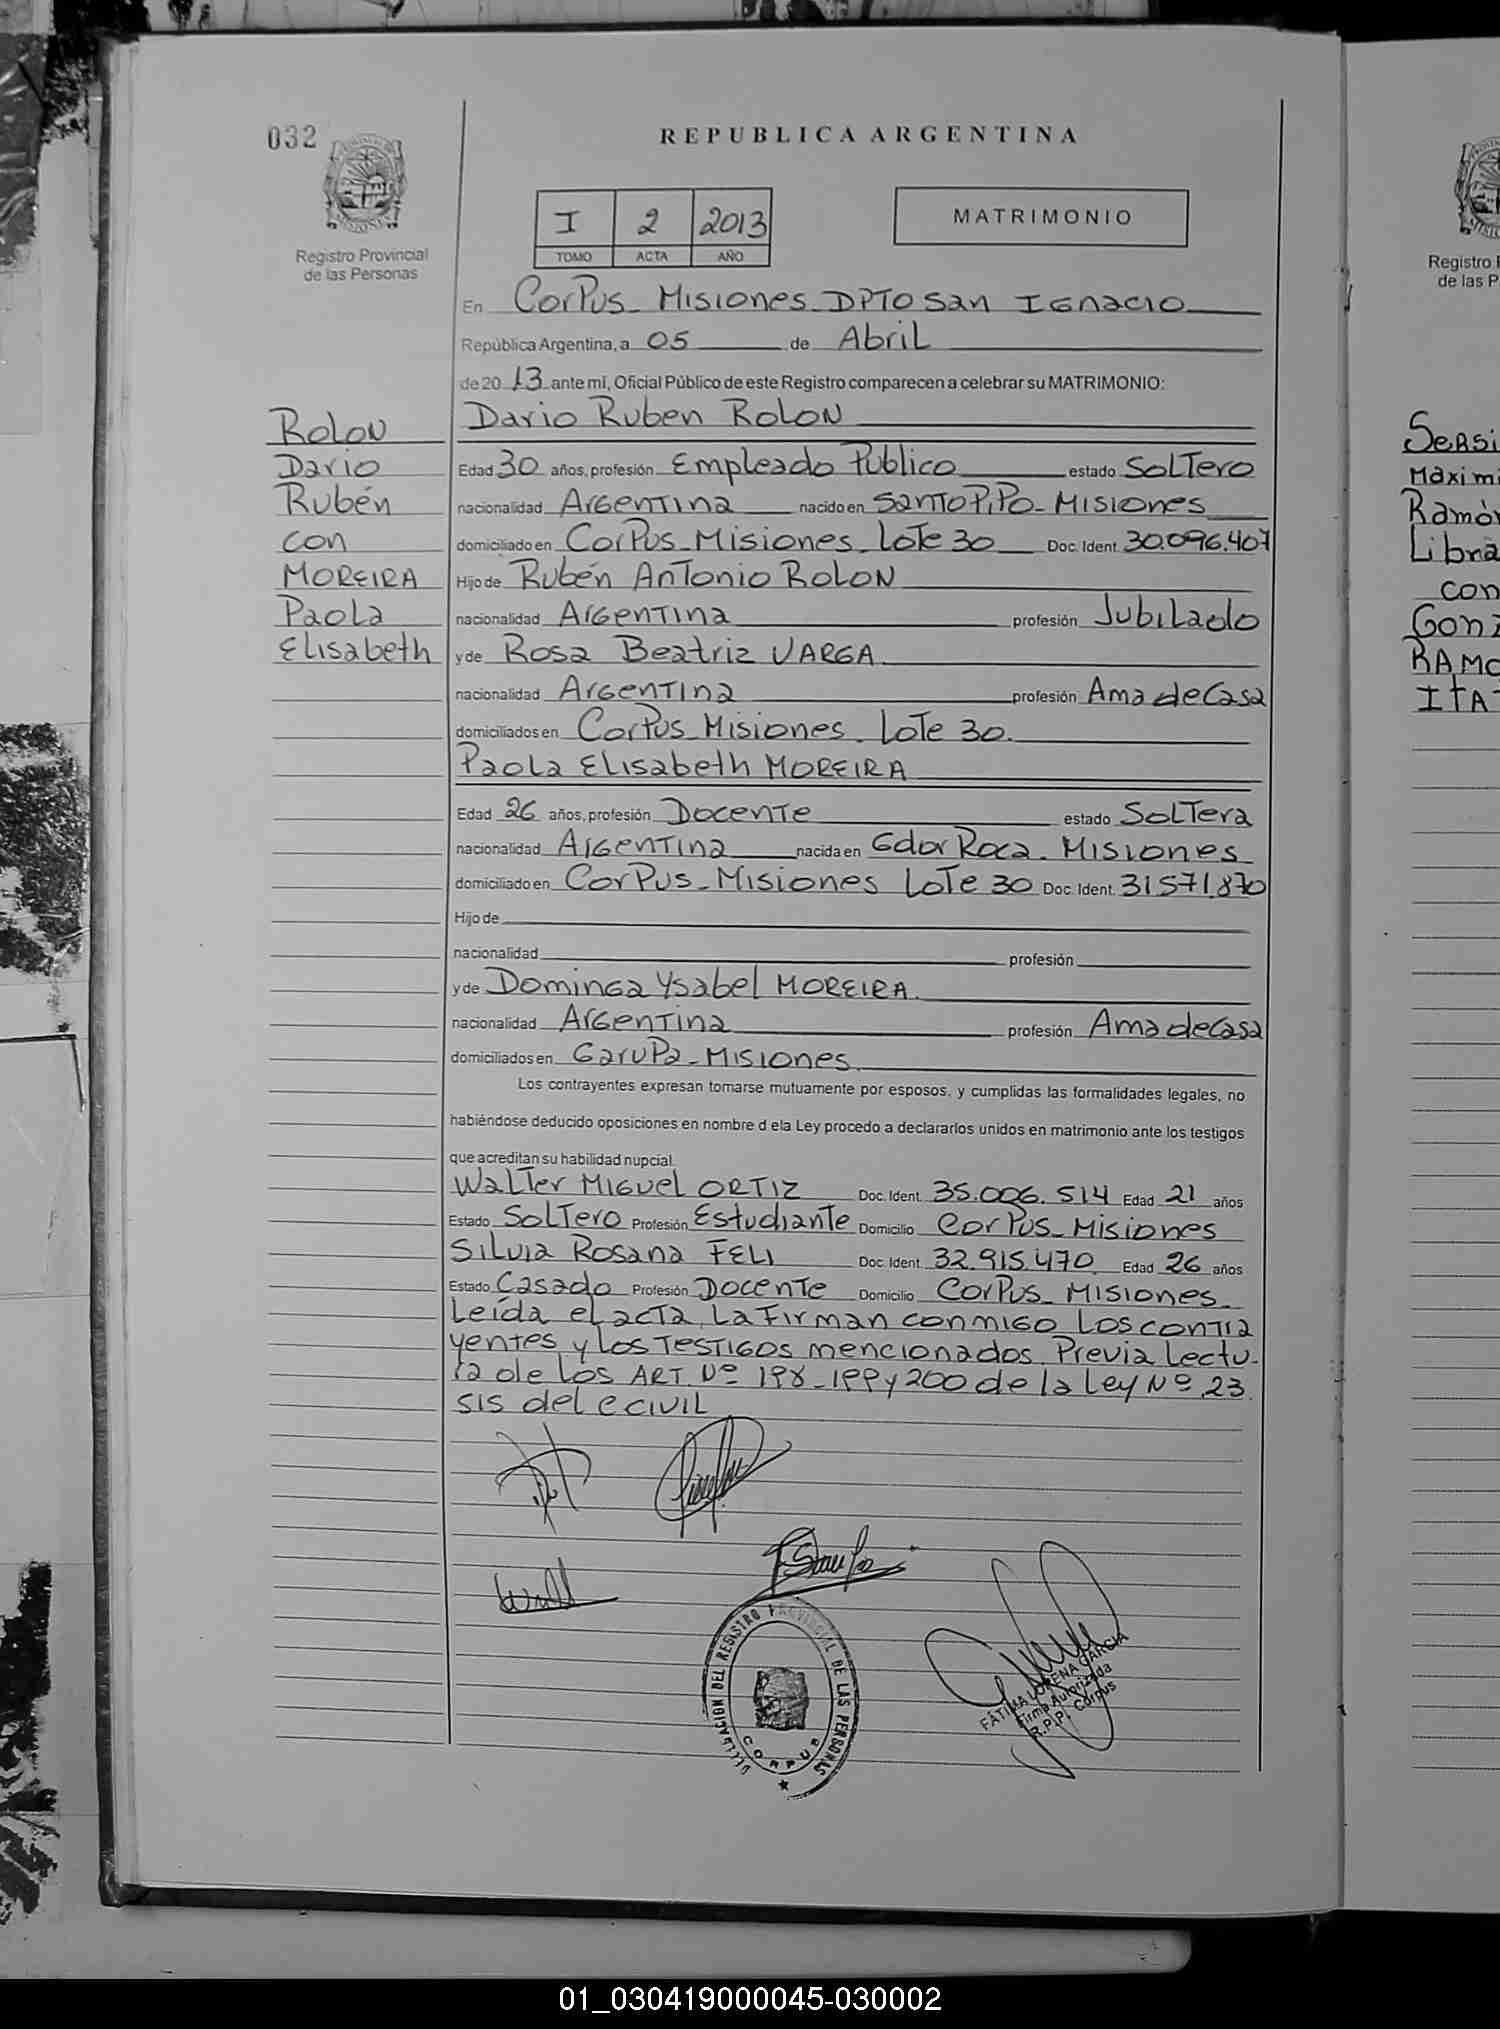 032
REPUBLICA ARGENTINA
Registro Provincial
de las Personas
I 2 2013
TOMO ACTA AÑO
MATRIMONIO
En Corpus Misiones DPTO San Ignacio
República Argentina, a 05 de Abril
de 2013 ante mi, Oficial Público de este Registro comparecen a celebrar su MATRIMONIO:
Rolon
Dario
Rubén
con
MOREIRA
Paola
Elisabeth
Dario Ruben ROLON
Edad 30 años, profesión Empleado Publico estado Soltero
nacionalidad Argentina nacido en Santo Pipo Misiones
domiciliado en Corpus Misiones Lote 30 Doc. Ident. 30.096.407
Hijo de Rubén Antonio ROLON
nacionalidad Argentina profesión Jubilado
y de Rosa Beatriz VARGA
nacionalidad Argentina profesión Ama de Casa
domiciliados en Corpus Misiones Lote 30.
Paola Elisabeth MOREIRA
Edad 26 años, profesión Docente estado Soltera
nacionalidad Argentina nacida en Gdor Roca Misiones
domiciliado en Corpus Misiones Lote 30 Doc. Ident. 31571.870
Hijo de
nacionalidad profesión
y de Dominga Ysabel MOREIRA
nacionalidad Argentina profesión Ama de Casa
domiciliados en Garupa Misiones
Los contrayentes expresan tomarse mutuamente por esposos, y cumplidas las formalidades legales, no
habiéndose deducido oposiciones en nombre d ela Ley procedo a declararlos unidos en matrimonio ante los testigos
que acreditan su habilidad nupcial.
Walter Miguel ORTIZ Doc. Ident. 35.006.514 Edad 21 años
Estado Soltero Profesión Estudiante Domicilio Corpus Misiones
Silvia Rosana FELI Doc. Ident. 32.915.470 Edad 26 años
Estado Casado Profesión Docente Domicilio Corpus Misiones
Leída el acta, la firman conmigo los contra
yentes y los testigos mencionados, Previa Lectu-
ra de los ART. Nº 198-199 y 200 de la Ley Nº 23.
515 del C CIVIL
DELEGACION DEL REGISTRO PROVINCIAL DE LAS PERSONAS
CORPUS
FÁTIMA LORENA GARCIA
Firma Autorizada
R.P.P. Corpus
Registro
de las P
Sersi
Maximi
Ramón
Libra
con
Gonz
RAMO
ItAT
01_030419000045-030002